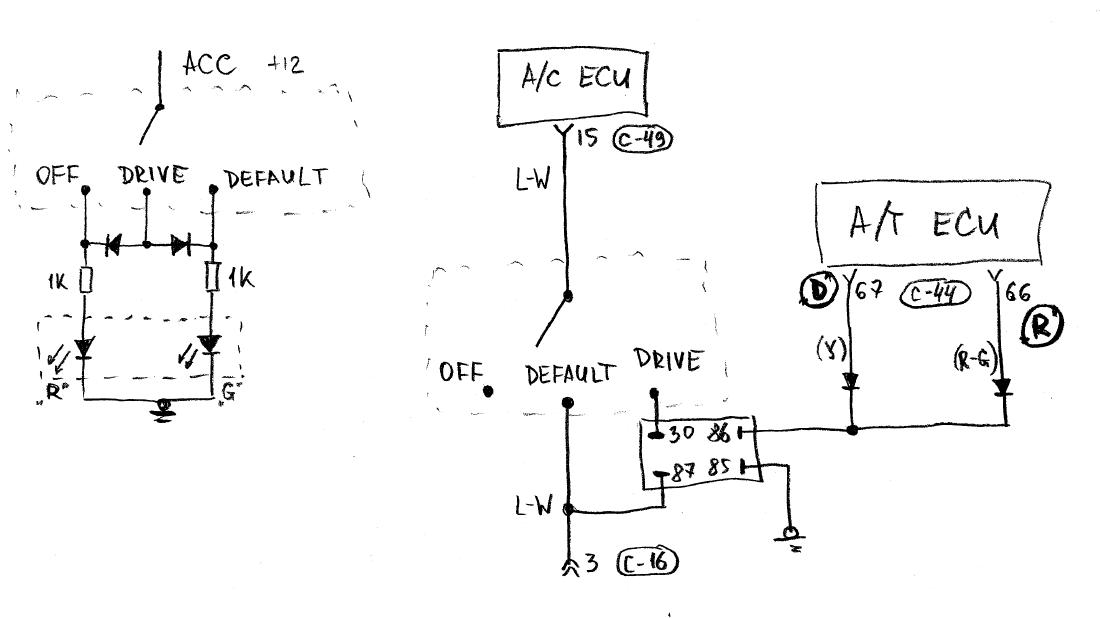 ACC +12
OFF DRIVE DEFAULT
1K 1K
„R" „G"
A/C ECU
15 C-49
L-W
OFF DEFAULT DRIVE
30 86
87 85
L-W
3 C-16
A/T ECU
„D" 67 C-44 66
„R"
(Y) (R-G)